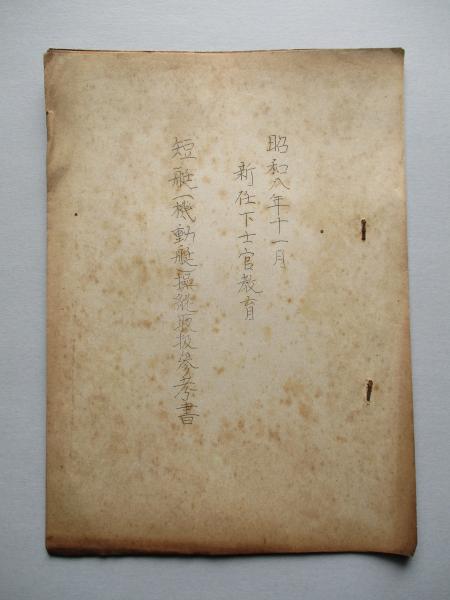 昭和八年十一月
新任下士官教育
短艇機動艇操縦取扱参考書